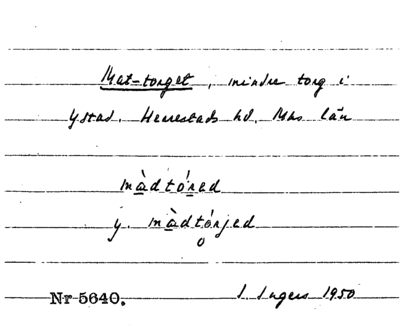 Mat-torget, mindre torg i
Ystad. Herrestads hd. Mhs län
màdtóred
y. màdtórjed
Nr 5640. I. Ingers 1950